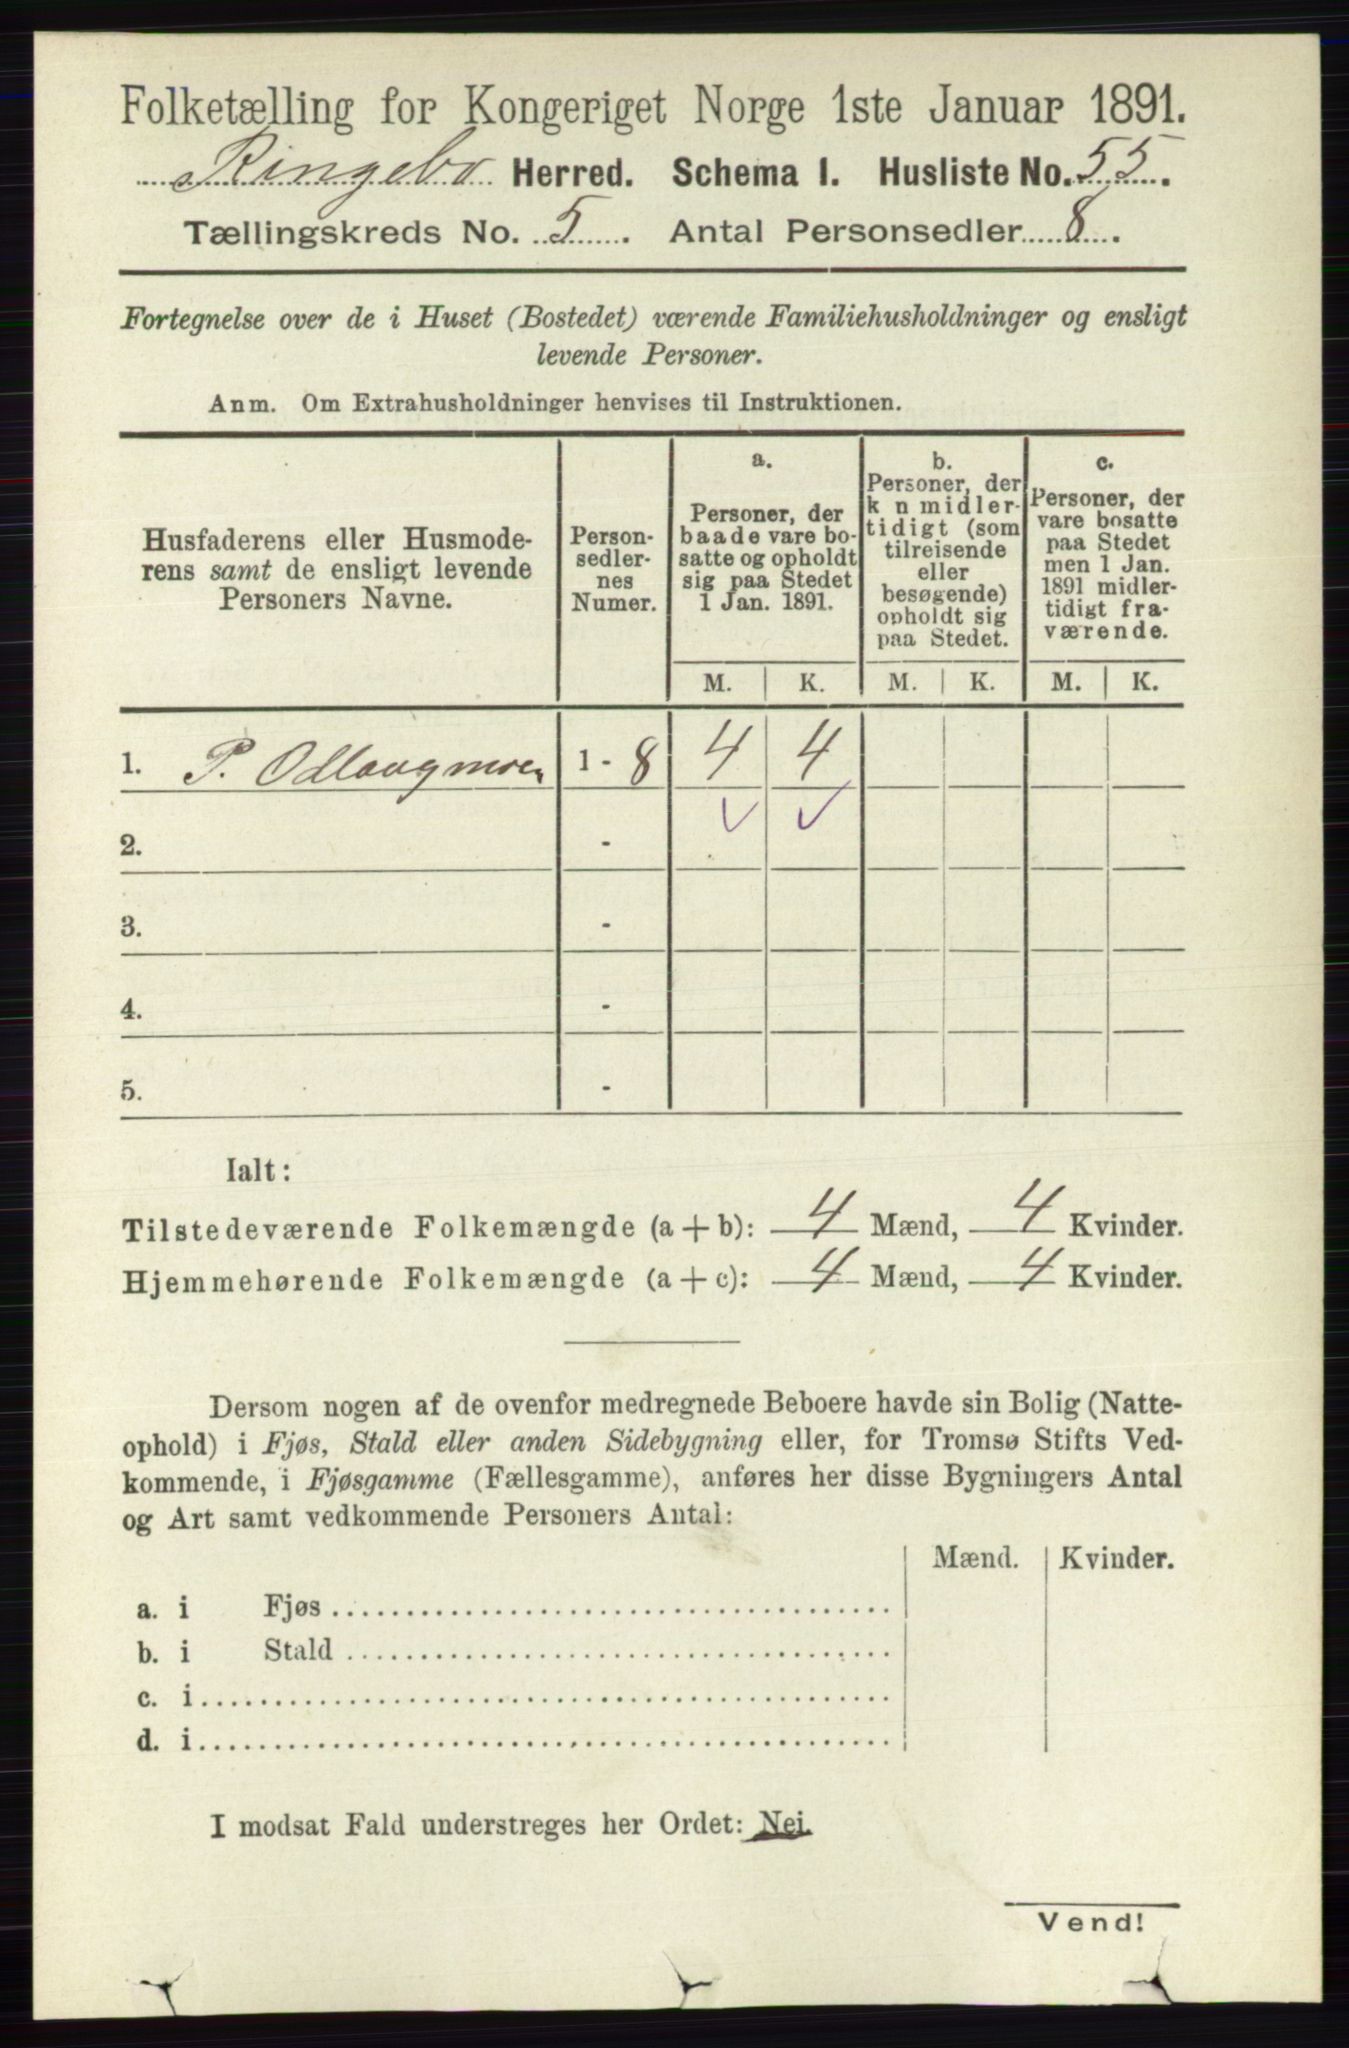 Folketælling for Kongeriget Norge 1ste Januar 1891.
Ringebo Herred. Schema 1. Husliste No. 55.
Tællingskreds No. 5. Antal Personsedler 8.
Fortegnelse over de i Huset (Bostedet) værende Familiehusholdninger og ensligt
levende Personer.
Anm. Om Extrahusholdninger henvises til Instruktionen.
Husfaderens eller Husmode-
rens samt de ensligt levende
Personers Navne.
Person-
sedler-
nes
Numer.
a.
Personer, der
baade vare bo-
satte og opholdt
sig paa Stedet
1 Jan. 1891.
b.
Personer, der
k n midler-
tidigt (som
tilreisende
eller
besøgende)
opholdt sig
paa Stedet.
c.
Personer, der
vare bosatte
paa Stedet
men 1 Jan.
1891 midler-
tidigt fra-
værende.
M. K. M. K. M. K.
1. P. Odlaugmoen 1 - 8 4 4
2. -
3. -
4. -
5. -
Ialt:
Tilstedeværende Folkemængde (a + b): 4 Mænd, 4 Kvinder.
Hjemmehørende Folkemængde (a + c): 4 Mænd, 4 Kvinder.
Dersom nogen af de ovenfor medregnede Beboere havde sin Bolig (Natte-
ophold) i Fjøs, Stald eller anden Sidebygning eller, for Tromsø Stifts Ved-
kommende, i Fjøsgamme (Fællesgamme), anføres her disse Bygningers Antal
og Art samt vedkommende Personers Antal:
Mænd. Kvinder.
a. i Fjøs
b. i Stald
c. i
d. i
I modsat Fald understreges her Ordet: Nei.
Vend!